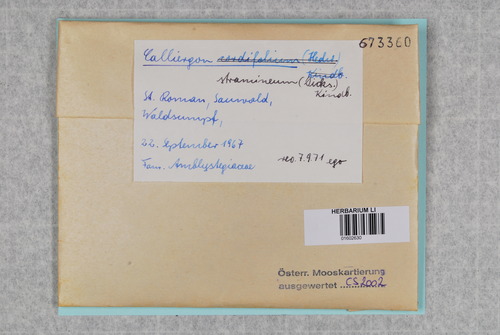 673360
Calliergon cordifolium (Hedw.) Kindb.
stramineum (Dicks.) Kindb.
St. Roman, Sauwald,
Waldsumpf,
22. September 1967
Fam. Amblystegiaceae rev. 7.9.71 ego
HERBARIUM LI
01502630
Österr. Mooskartierung
ausgewertet ..... CS 2002